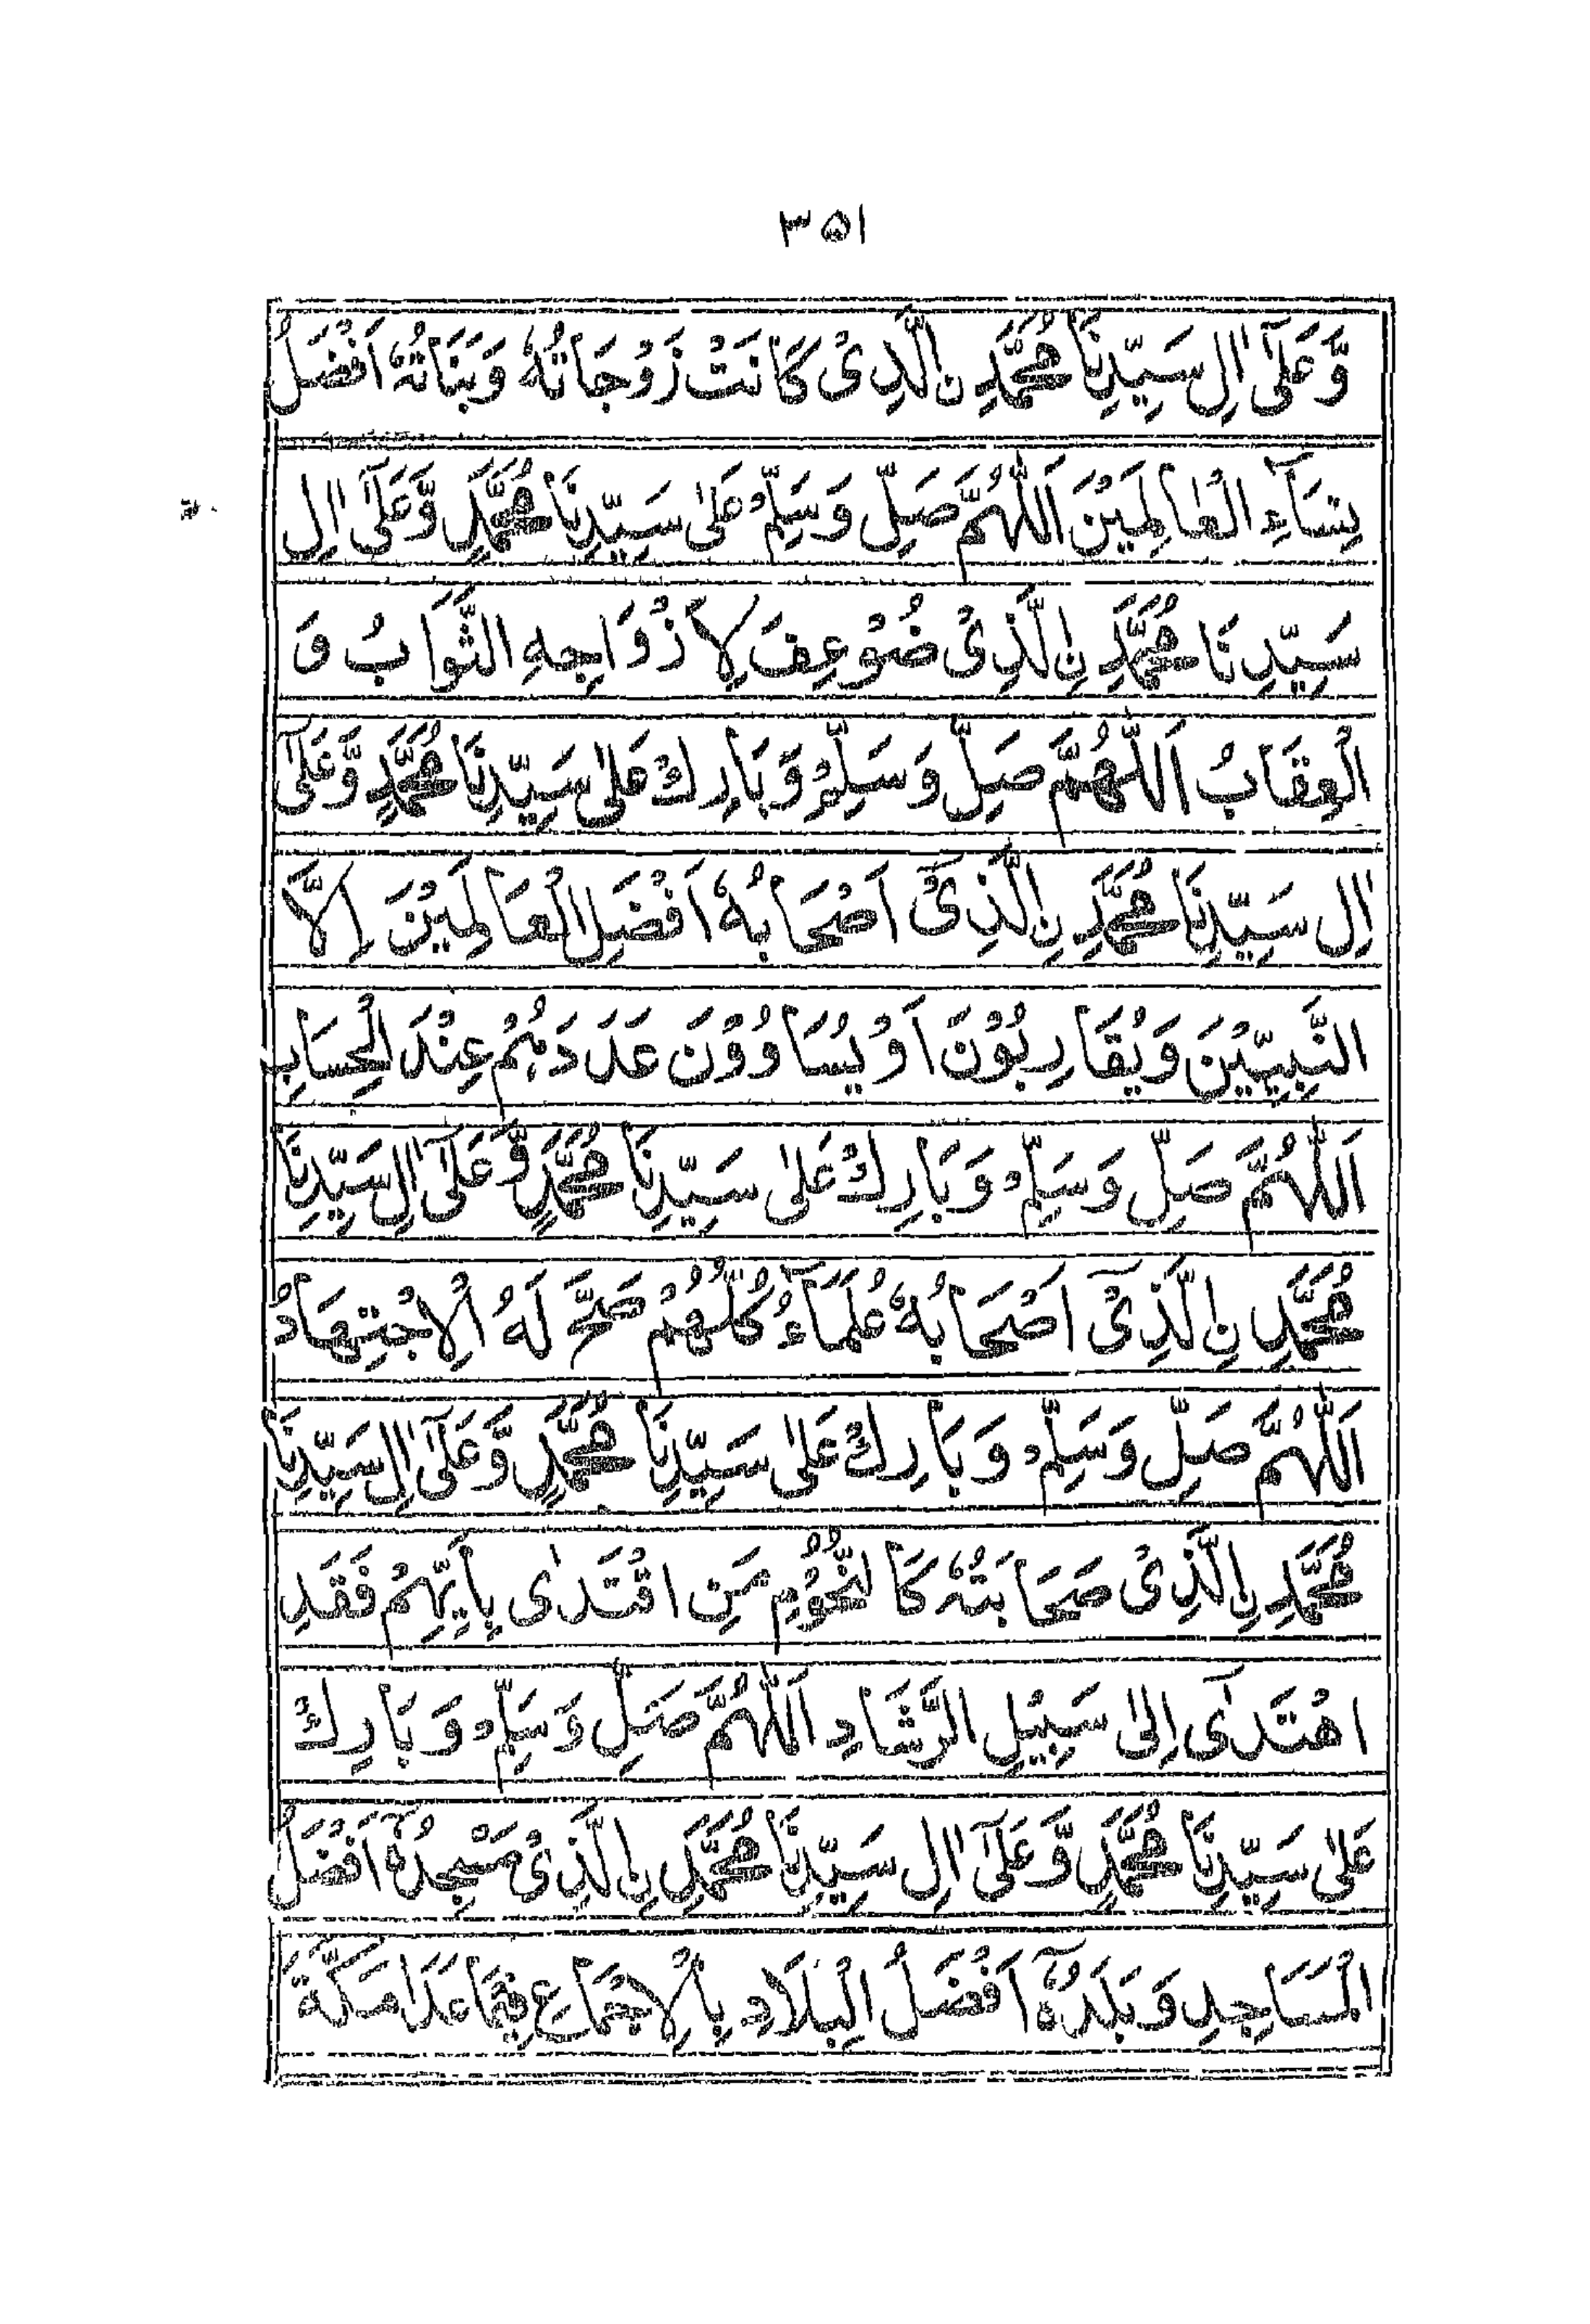 ۳۵۱
وَّعَلٰٓى اٰلِ سَيِّدِنَا مُحَمَّدِ نِ الَّذِىْ كَانَتْ زَوْجَاتُهٗ وَبَنَاتُهٗ اَفْضَلُ
نِسَآءِ الْعٰالَمِيْنَ اَللّٰهُمَّ صَلِّ وَسَلِّمْ عَلٰى سَيِّدِنَا مُحَمَّدٍ وَّعَلٰٓى اٰلِ
سَيِّدِنَا مُحَمَّدِ نِ الَّذِىْ ضُوْعِفَ لِاَزْوَاجِهِ الثَّوَابُ وَ
الْعِقَابُ اَللّٰهُمَّ صَلِّ وَسَلِّمْ وَبَارِكْ عَلٰى سَيِّدِنَا مُحَمَّدٍ وَّعَلٰٓى
اٰلِ سَيِّدِنَا مُحَمَّدِ نِ الَّذِىْٓ اَصْحَابُهٗ اَفْضَلُ الْعَالَمِيْنَ اِلَّا
النَّبِيِّيْنَ وَيُقَارِبُوْنَ اَوْ يُسَاوُوْنَ عَدَدَهُمْ عِنْدَ الْحِسَابِ
اَللّٰهُمَّ صَلِّ وَسَلِّمْ وَبَارِكْ عَلٰى سَيِّدِنَا مُحَمَّدٍ وَّعَلٰٓى اٰلِ سَيِّدِنَا
مُحَمَّدِ نِ الَّذِىْٓ اَصْحَابُهٗ عُلَمَآءُ كُلُّهُمْ صَحَّ لَهُ الْاِجْتِهَادُ
اَللّٰهُمَّ صَلِّ وَسَلِّمْ وَبَارِكْ عَلٰى سَيِّدِنَا مُحَمَّدٍ وَّعَلٰٓى اٰلِ سَيِّدِنَا
مُحَمَّدِ نِ الَّذِىْ صَحَابَتُهٗ كَالنُّجُوْمِ مَنِ اقْتَدٰى بِاَيِّهِمْ فَقَدِ
اهْتَدٰٓى اِلٰى سَبِيْلِ الرَّشَادِ اَللّٰهُمَّ صَلِّ وَسَلِّمْ وَبَارِكْ
عَلٰى سَيِّدِنَا مُحَمَّدٍ وَّعَلٰٓى اٰلِ سَيِّدِنَا مُحَمَّدِ نِ الَّذِىْ مَسْجِدُهٗٓ اَفْضَلُ
الْمَسَاجِدِ وَبَلَدُهٗٓ اَفْضَلُ الْبِلَادِ بِالْاِجْمَاعِ فِيْمَا عَدَا مَكَّةَ